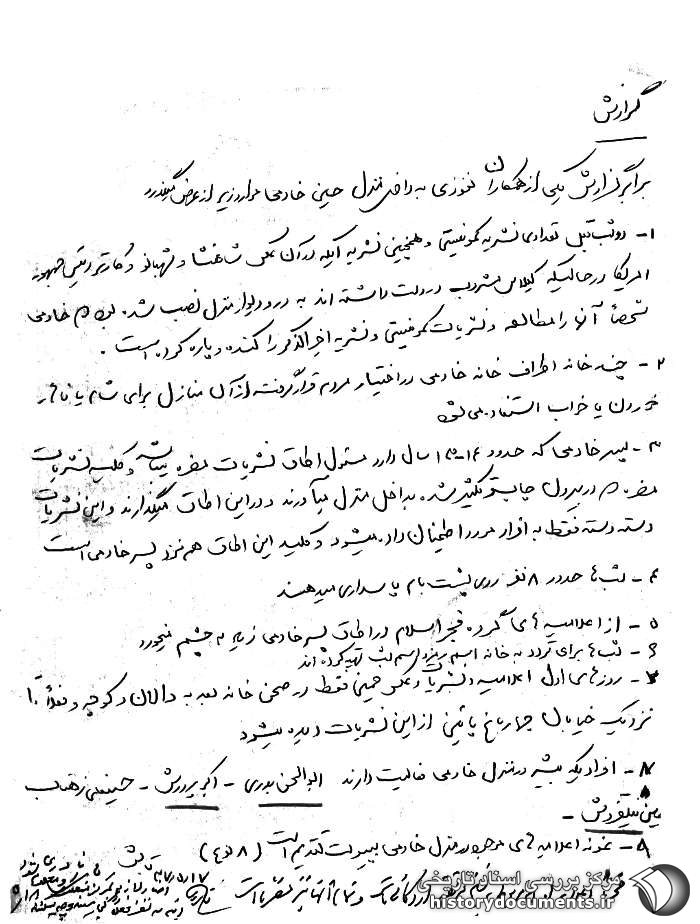 گزارش
برابر گزارش یکی از همکاران نفوذی به داخل منزل حسین خادمی موارد زیر از عرض میگذرد
۱- دو شب قبل تعدادی نشریه کمونیستی و همچنین نشریه آیکه در آن عکس شاهنشاه و شهبانو و کارتر رئیس جمهور
امریکا در حالیکه گیلاس مشروب در دست داشته اند به در و دیوار منزل نصب شد. خادمی
شخصاً آنها را مطالعه و نشریات کمونیستی و نشریه اخیرالذکر را کنده و پاره کرده است.
۲- چند خانه اطراف خانه خادمی در اختیار مردم قرار گرفته از آن منازل برای شام یا ناهار
خوردن یا خواب استفاده می شود
۳- پسر خادمی که حدود ۱۴-۱۳ سال دارد مسئول اطاق نشریات مضره میباشد و کلیه نشریات
مضره در بیرون چاپ و تکثیر شده به داخل منزل میآورند و در این اطاق میگذارند و این نشریات
دسته دسته فقط به افراد مورد اطمینان داده میشود و کلید این اطاق هم نزد پسر خادمی است
۴- شبها حدود ۸ نفر روی پشت بام پاسداری میدهند
۵- از اعلامیه های گروه فجر اسلام در اطاق پسر خادمی زیاد به چشم میخورد
۶- شبها برای تردد به خانه اسم تهیه کرده اند
۷- روزهای اول اعلامیه و نشریات و عکس خمینی فقط در صحن خانه بعد به دالان و کوچه و فعلاً تا
نزدیک خیابان چهارباغ پائین از این نشریات دیده میشود
۸- افرادیکه بیشتر در منزل خادمی فعالیت دارند ابوالحسن بدری - اکبر پرورش - حسینعلی
۹- نمونه اعلامیه های موجود در منزل خادمی به پیوست تقدیم است (۸ نوع)
مرکز بررسی اسناد تاریخی
historydocuments.ir